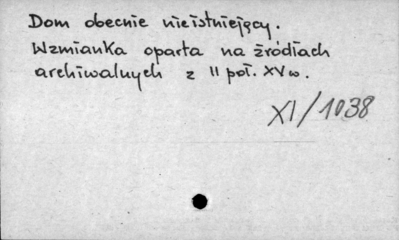 Dom obecnie nieistniejący.
Wzmianka oparta na źródłach
archiwalnych z II poł. XV w.
XI/1038